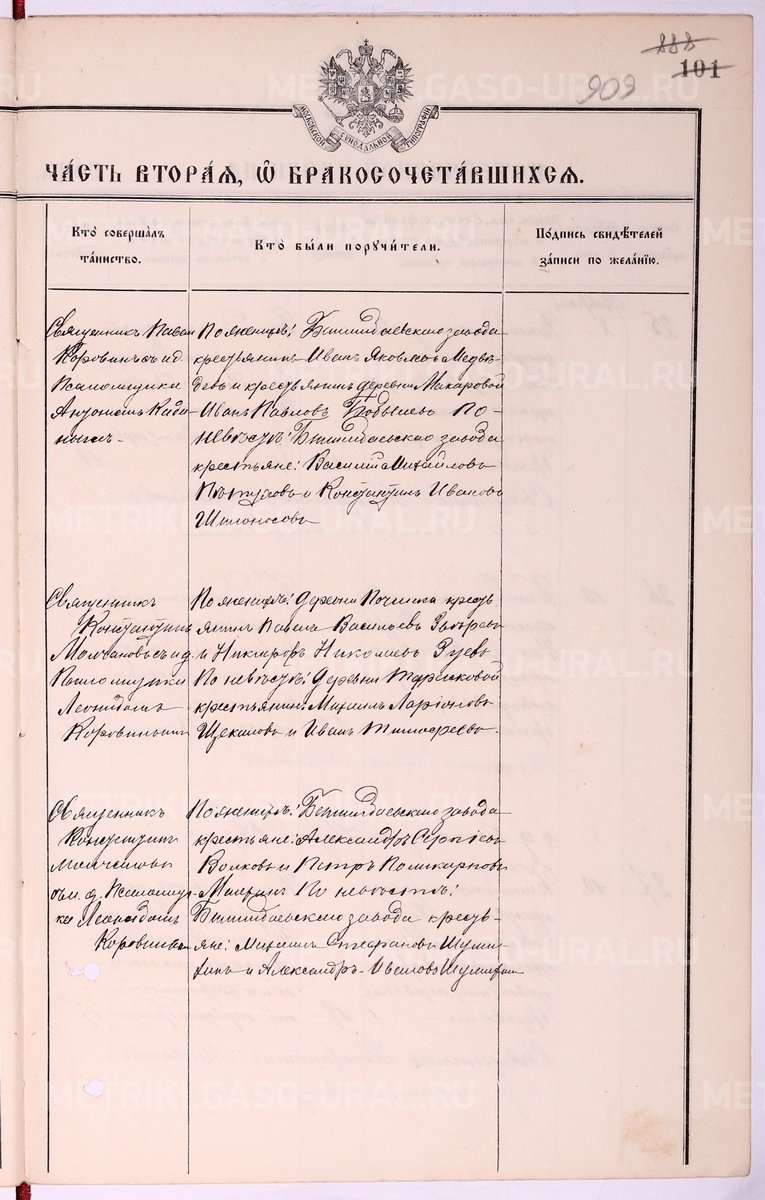 888
101
909
МОСКОВСКОЙ СѴНОДАЛЬНОЙ ТИПОГРАФІИ
ЧА́СТЬ ВТОРА́Я, Ѡ҆ БРАКОСОЧЕТА́ВШИХСЯ.
Кто̀ соверша́лъ
та́инство.
Кто̀ бы́ли порꙋчи́тели.
По́дпись свидѣ́телей
за́писи по жела́нїю.
Священникъ Павелъ
Коровинъ съ и. д.
Псаломщика
Антоніемъ
По женихѣ: Билимбаевскаго завода
крестьянинъ Иванъ Яковлевъ Медвѣ-
девъ и крестьянинъ деревни Макаровой
Иванъ Павловъ По-
невѣстѣ: Билимбаевскаго завода
крестьяне: Василій Михайловъ
Пѣтуховъ и Константинъ Ивановъ
Шилоносовъ
Священникъ
Константинъ
Молчановъ съ и. д.
Псаломщика
Леонидомъ
Коровинымъ
По женихѣ: деревни Починка кресть-
янинъ Павелъ Васильевъ
и Никифоръ Николаевъ Зуевъ
По невѣстѣ: деревни
крестьянин Михаилъ Ларіоновъ
Щекаловъ и Иванъ Тимофеевъ
Священникъ
Константинъ
Молчановъ
съ и. д. Псаломщи-
ка Леонидомъ
Коровинымъ
По женихѣ: Билимбаевскаго завода
крестьяне: Александръ Сергѣевъ
Волковъ и Петръ Поликарповъ
По невѣстѣ:
Билимбаевскаго завода кресть-
яне: Михаилъ Стефановъ Шули-
гинъ и Александръ Ивановъ Шулигинъ
METRIKI.GASO-URAL.RU